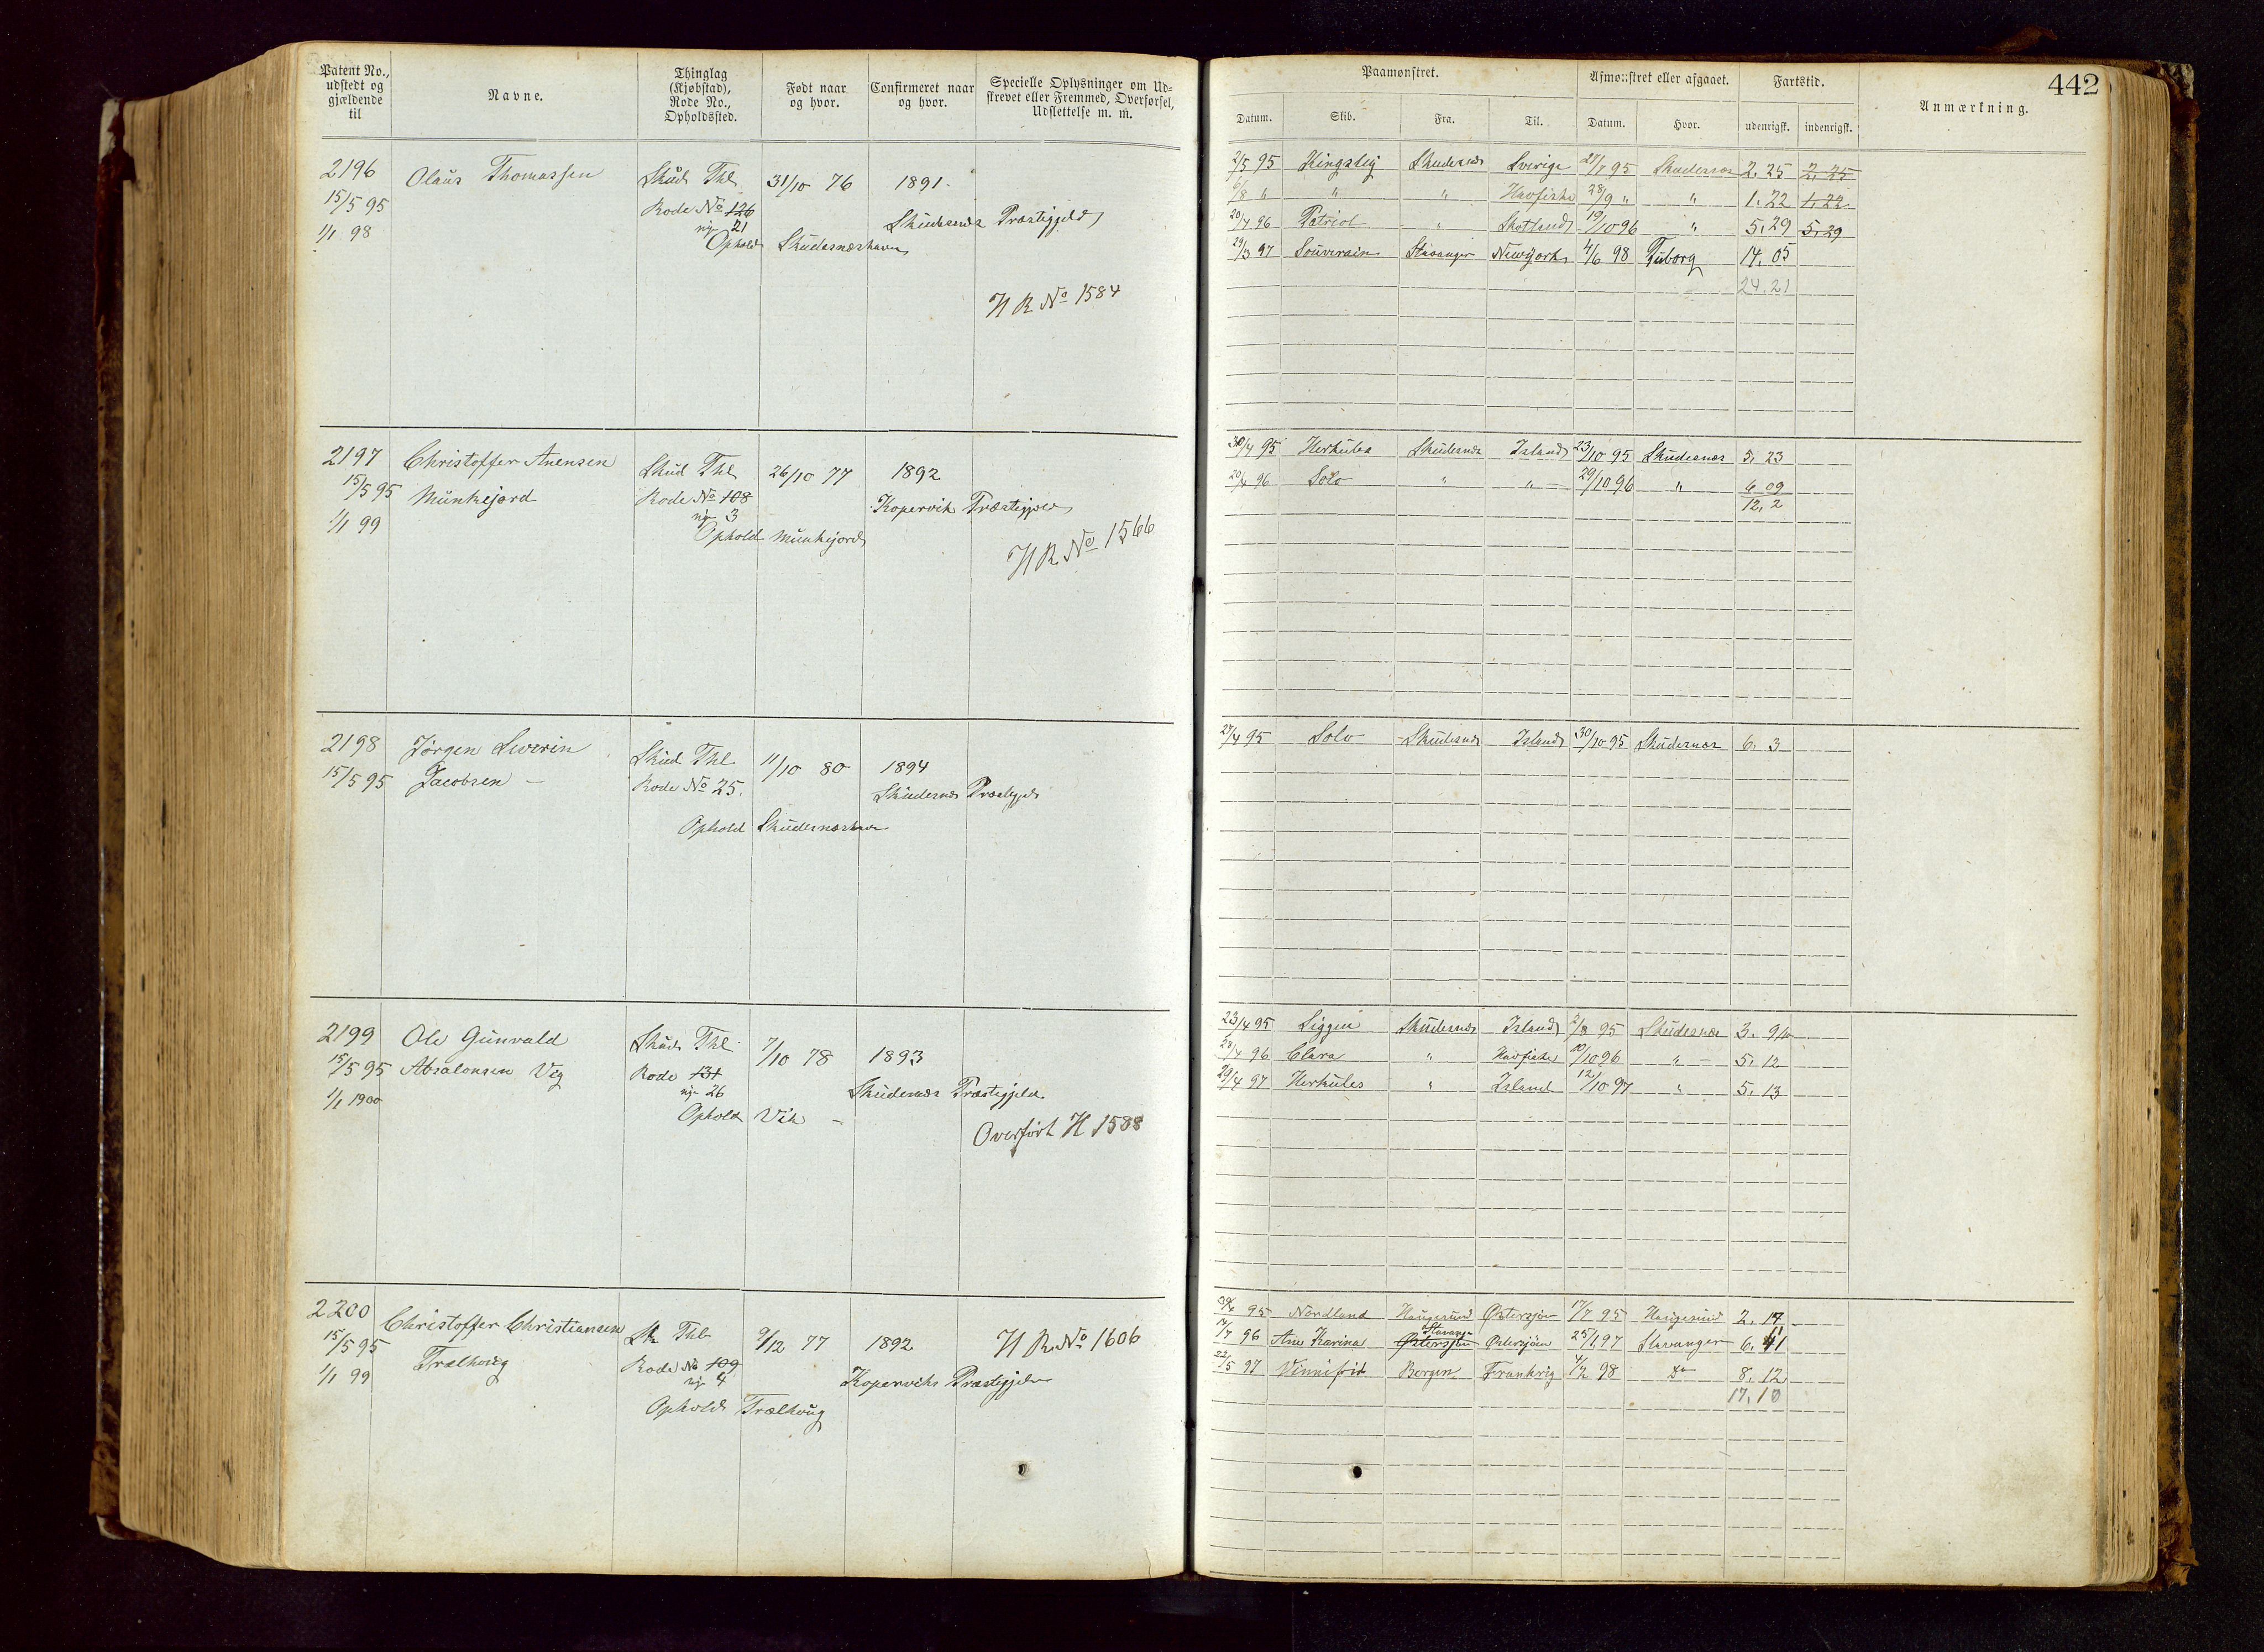 Patent No.,
udstedt og
gjældende
til
Navne.
Thinglag
(Kjøbstad),
Rode No.,
Opholdssted.
Født naar
og hvor.
Confirmeret naar
og hvor.
Specielle Oplysninger om Ud-
skrevet eller Fremmed, Overførsel,
Udslettelse m. m.
2196
15/5 95
1/1 98
Olaus Thomassen
Skud Thl.
Rode No 126
ny 21
Ophold Skudesnæshavn
31/10 76
1891.
Skudesnæs Præstegjeld
H R No 1584
2197
15/5 95
1/1 99
Christoffer Anensen
Munkejord
Skud Thl
Rode No 108
ny 3
Ophold Munkejord
26/10 77
1892
Kopervik Præstegjeld
H R No 1566
2198
15/5 95
Jørgen Severin
Jacobsen –
Skud Thl
Rode No 25.
Ophold Skudesnæshavn
11/10 80
1894
Skudesnæs Præstegjeld
2199
15/5 95
1/1 1900
Ole Gunvald
Absalonsen Veg
Skud Thl
Rode 131
ny 26
Ophold Vik –
7/10 78
1893
Skudesnæs Præstegjeld
Overført H 1588
2200
15/5 95
1/1 99
Christoffer Christiansen
Trælhoug
Sk Thl
Rode No 109
ny 4
Ophold Trælhoug
9/12 77
1892
Koperviks Præstegjeld
H R No 1606
442
Paamønstret.
Afmønstret eller afgaaet.
Fartstid.
Anmærkning.
Datum.
Skib.
Fra.
Til.
Datum.
Hvor.
udenrigsk.
indenrigsk.
2/5 95 Kingsley Skudesnæs Sverige 27/7 95 Skudesnæs 2.25 2.25
6/8 " " " Havfiske 28/9 " " 1.22 1.22
20/4 96 Patriot " Skotland 19/10 96 " 5,29 5,29
29/3 97 Souverain Stavanger Newyork 4/6 98 Tuborg 14.05
24.21
30/4 95 Herkules Skudesnæs Island 23/10 95 Skudesnæs 5.23
20/4 96 Solo " " 29/10 96 " 6 09
12,2
27/4 95 Solo Skudesnæs Island 30/10 95 Skudesnæs 6.3
23/4 95 Siggen Skudesnæs Island 2/8 95 Skudesnæs 3.
Clara " Havfiske 10/10 96 " 5.12
29/4 97 Herkules " Island 12/10 97 " 5.13
95 Nordland Haugesund Østersjøen 17/7 95 Haugesund 2.
Stavanger
14/7 96 Ane Karina Østersjøen Østersjøen 25/1 97 Stavanger 6.11
22/5 97 Vinnifrid Bergen Frankrig 4/2 98 Do 8.12
17.10